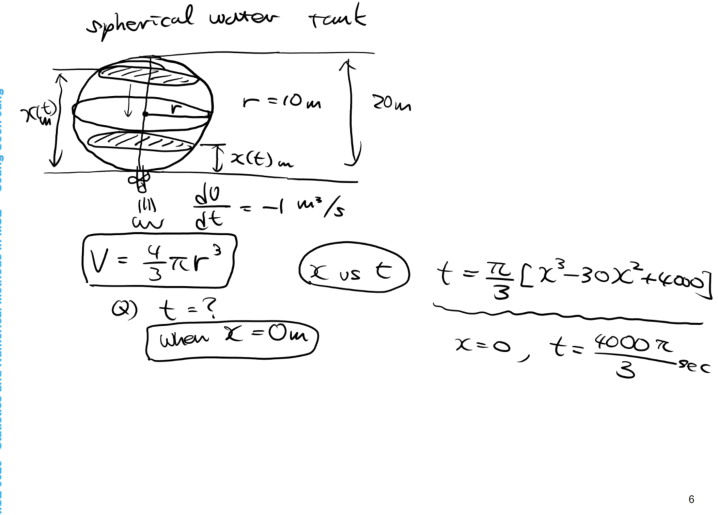 spherical water tank
x(t) m
r
r = 10m
20m
x(t) m
dV/dt = -1 m³/s
V = 4/3 πr³
x vs t
t = π/3 [x³-30x²+4000]
Q) t = ?
when x = 0m
x=0, t = 4000π/3 sec
6